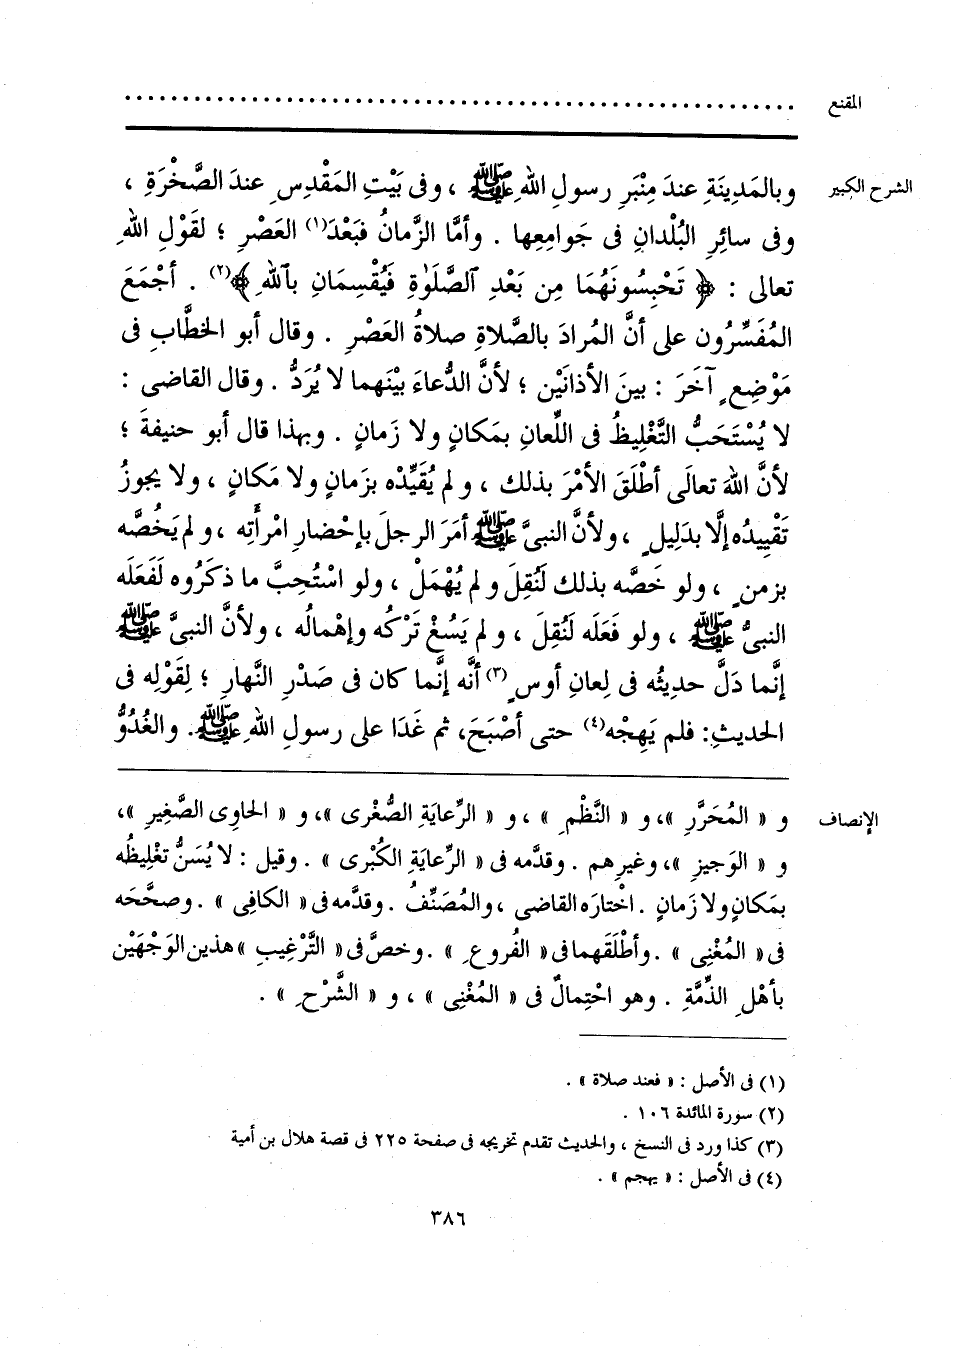 المقنع ................................................................
الشرح الكبير وبالمَدِينَةِ عندَ مِنْبَرِ رسولِ اللهِ ﷺ ، وفى بَيْتِ المَقْدِسِ عندَ الصَّخْرَةِ ،
وفى سائِرِ البُلْدانِ فى جَوامِعِها . وأمَّا الزَّمانُ فبَعْدَ(١) العَصْرِ ؛ لقَوْلِ اللهِ
تعالى : ﴿ تَحْبِسُونَهُمَا مِن بَعْدِ ٱلصَّلَوٰةِ فَيُقْسِمَانِ بِٱللهِ ﴾(٢) . أجْمَعَ
المُفَسِّرُون على أنَّ المُرادَ بالصَّلاةِ صلاةُ العَصْرِ . وقال أبو الخطَّابِ فى
مَوْضِعٍ آخَرَ : بينَ الأذانَيْن ؛ لأنَّ الدُّعاءَ بيْنَهما لا يُرَدُّ . وقال القاضى :
لا يُسْتَحَبُّ التَّغْلِيظُ فى اللِّعانِ بمَكانٍ ولا زَمانٍ . وبهذا قال أبو حنيفةَ ؛
لأنَّ اللهَ تعالَى أطْلَقَ الأمْرَ بذلك ، ولم يُقَيِّدْه بزَمانٍ ولا مَكانٍ ، ولا يجوزُ
تَقْيِيدُه إلَّا بدَلِيلٍ ، ولأنَّ النبىَّ ﷺ أمَرَ الرجلَ بإحْضارِ امْرأتِه ، ولم يَخُصَّه
بزمنٍ ، ولو خَصَّه بذلك لَنُقِلَ ولم يُهْمَلْ ، ولو اسْتُحِبَّ ما ذكَرُوه لَفَعَلَه
النبىُّ ﷺ ، ولو فَعَلَه لَنُقِلَ ، ولم يَسُغْ تَرْكُه وإهْمالُه ، ولأنَّ النبىَّ ﷺ
إنَّما دَلَّ حديثُه فى لِعانِ أوسٍ(٣) أنَّه إنَّما كان فى صَدْرِ النَّهارِ ؛ لِقَوْلِه فى
الحديثِ: فلم يَهِجْه(٤) حتى أصْبَحَ، ثم غَدَا على رسولِ اللهِ ﷺ. والغُدُوُّ
الإنصاف و « المُحَرَّرِ »، و « النَّظْمِ » ، و « الرِّعايَةِ الصُّغْرى »، و « الحاوِى الصَّغِيرِ »،
و « الوَجيزِ »، وغيرِهم . وقدَّمه فى « الرِّعايَةِ الكُبْرى » . وقيل : لا يُسَنُّ تغْلِيظُه
بمَكانٍ ولا زَمانٍ . اخْتارَه القاضى ، والمُصَنِّفُ . وقدَّمه فى « الكافِى » . وصحَّحَه
فى « المُغْنِى » . وأطْلَقَهما فى « الفُروعِ » . وخصَّ فى « التَّرْغيبِ » هذين الوَجْهَيْن
بأهْلِ الذِّمَّةِ . وهو احْتِمالٌ فى « المُغْنِى » ، و « الشَّرْحِ » .
(١) فى الأصل : « فعند صلاة » .
(٢) سورة المائدة ١٠٦ .
(٣) كذا ورد فى النسخ ، والحديث تقدم تخريجه فى صفحة ٢٢٥ فى قصة هلال بن أمية
(٤) فى الأصل : « يهجم » .
٣٨٦